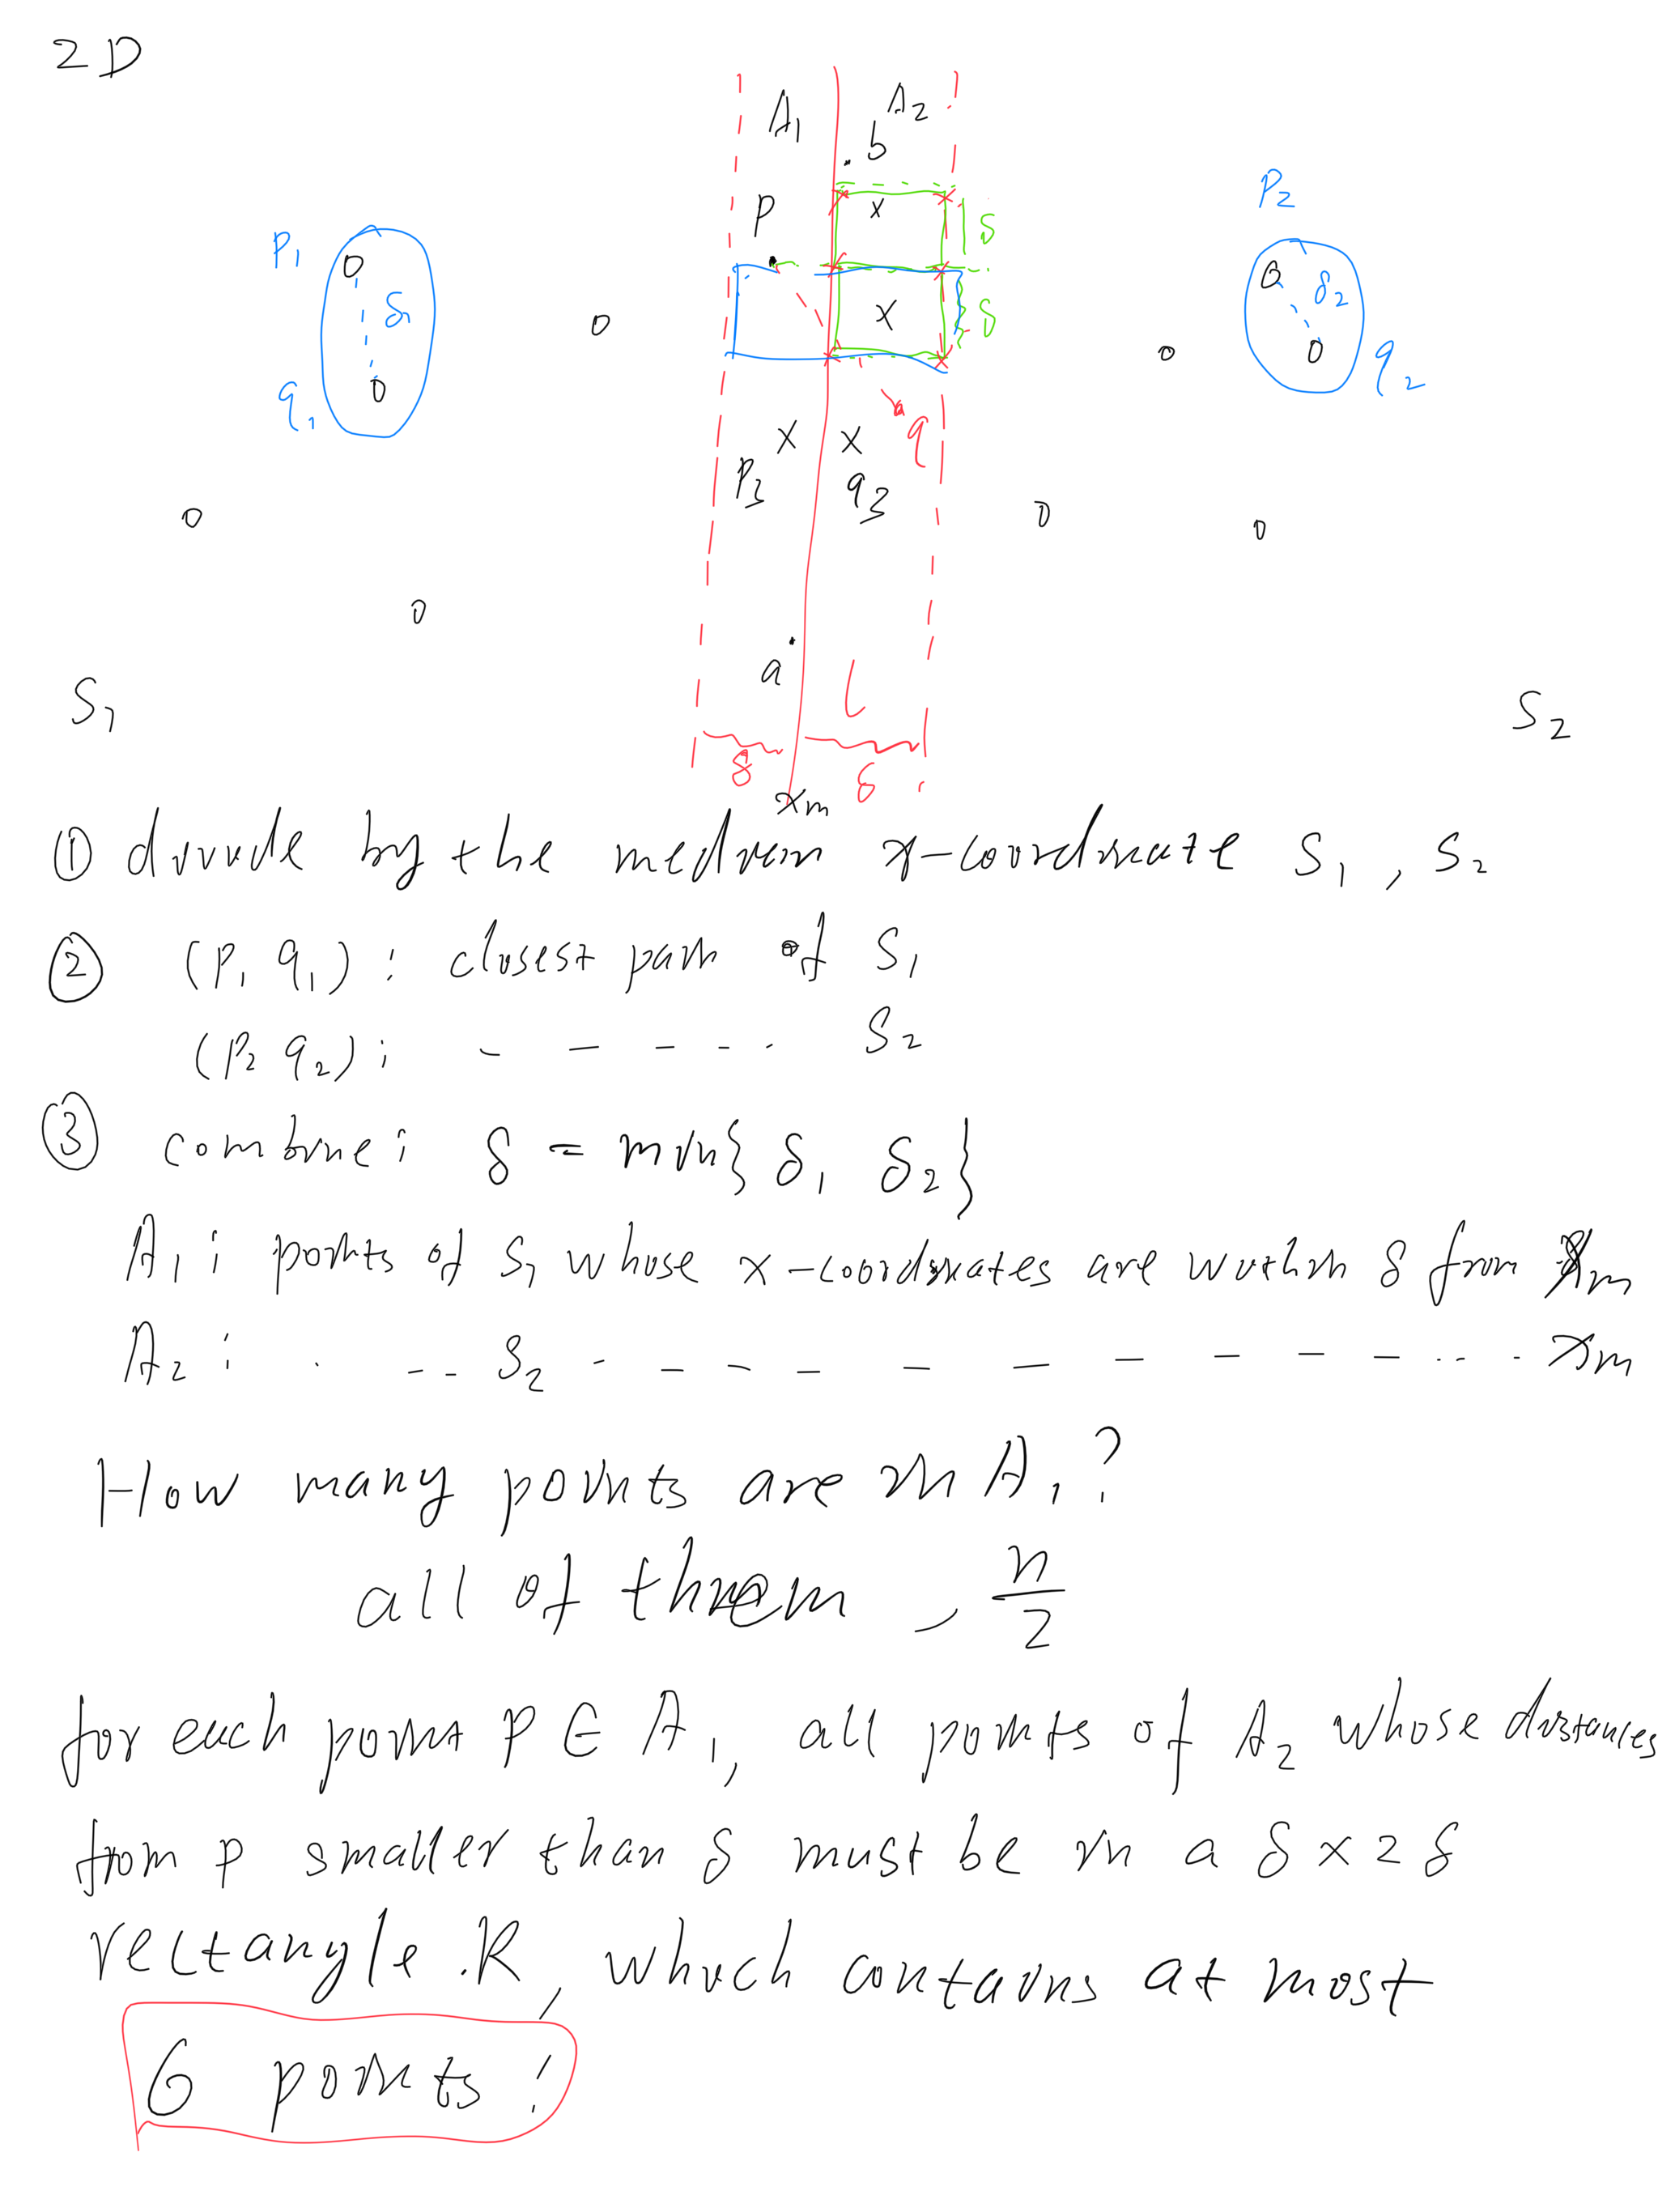 2D
A1 A2
. b
P x δ
P1 P2
δ1 x δ δ2
q1 q q2
x x
P3 q3
a L
S1 S2
δ δ
xm
① divide by the median x-coordinate S1, S2
② (P1 q1): closest pair of S1
(P2 q2): - - - - - S2
③ combine: δ = min{ δ1 δ2}
A1: points of S1 whose x-coordinates are within δ from xm
A2: . -- S2 - - - - - - - - - - -- . xm
How many points are in A1?
all of them, n/2
for each point P ∈ A1, all points of A2 whose distances
from p smaller than δ must be in a δ x 2δ
rectangle R, which contains at most
6 points!